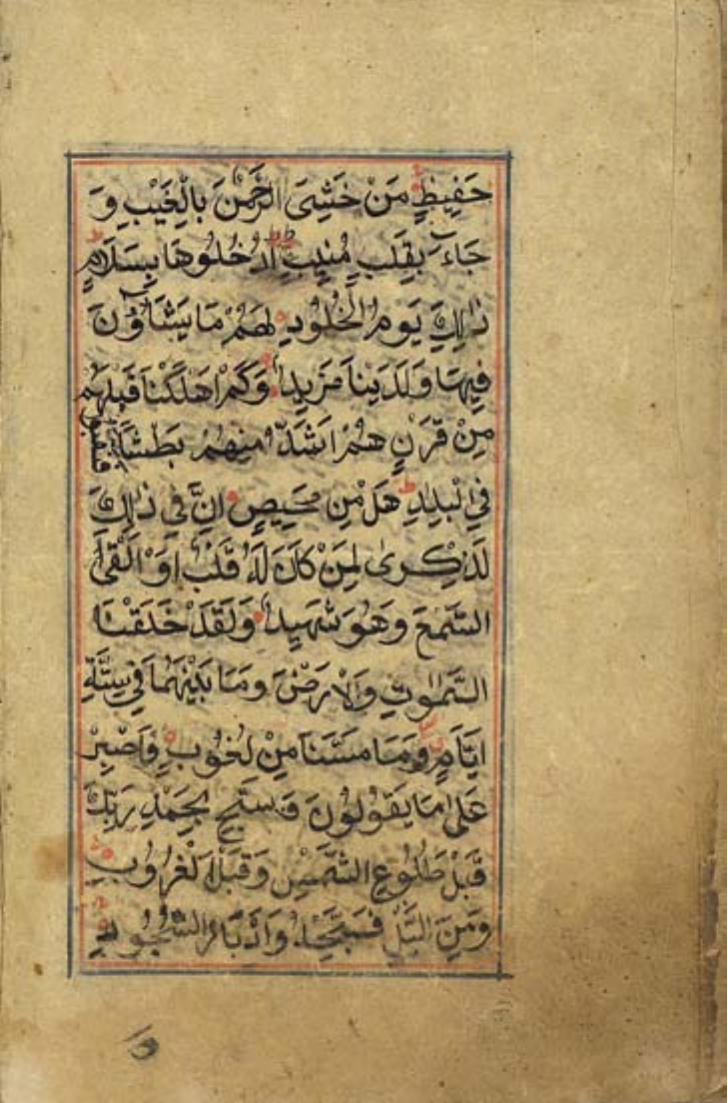 حَفِيظٍ مَنْ خَشِيَ الرَّحْمٰنَ بِالْغَيْبِ وَ
جَآءَ بِقَلْبٍ مُنِيبٍ ادْخُلُوهَا بِسَلَامٍ
ذٰلِكَ يَوْمُ الْخُلُودِ لَهُمْ مَا يَشَاؤُنَ
فِيهَا وَلَدَيْنَا مَزِيدٌ وَكَمْ اَهْلَكْنَا قَبْلَهُمْ
مِنْ قَرْنٍ هُمْ اَشَدُّ مِنْهُمْ بَطْشًا فنقبوا
فِي الْبِلَادِ هَلْ مِنْ مَحِيصٍ اِنَّ فِي ذٰلِكَ
لَذِكْرٰى لِمَنْ كَانَ لَهُ قَلْبٌ اَوْ اَلْقَى
السَّمْعَ وَهُوَ شَهِيدٌ وَلَقَدْ خَلَقْنَا
السَّمٰوٰتِ وَالْاَرْضَ وَمَا بَيْنَهُمَا فِي سِتَّةِ
اَيَّامٍ وَمَا مَسَّنَا مِنْ لُغُوبٍ فَاصْبِرْ
عَلٰى مَا يَقُولُونَ وَسَبِّحْ بِحَمْدِ رَبِّكَ
قَبْلَ طُلُوعِ الشَّمْسِ وَقَبْلَ الْغُرُوبِ
وَمِنَ الَّيْلِ فَسَبِّحْهُ وَاَدْبَارَ السُّجُودِ